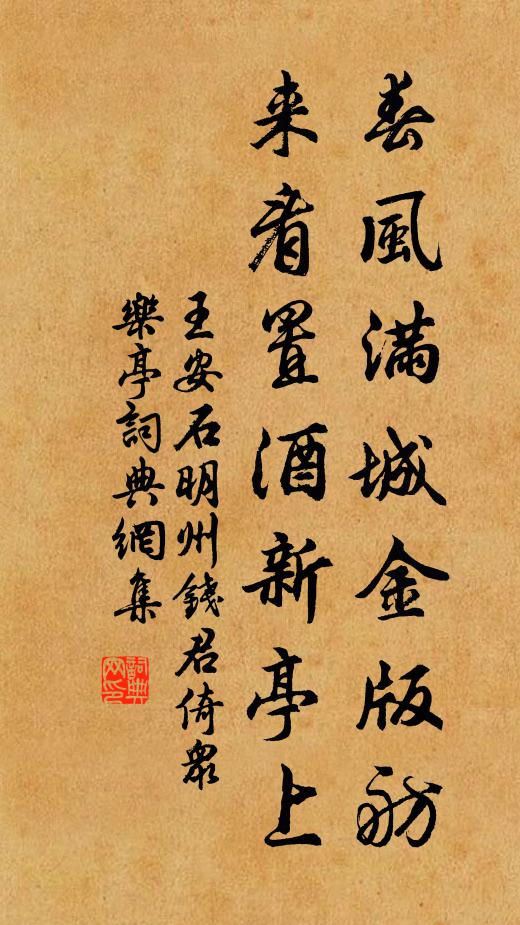 春風滿城金版舫
来看置酒新亭上
王安石明州錢君倚眾
樂亭詞典網集
詞典网印